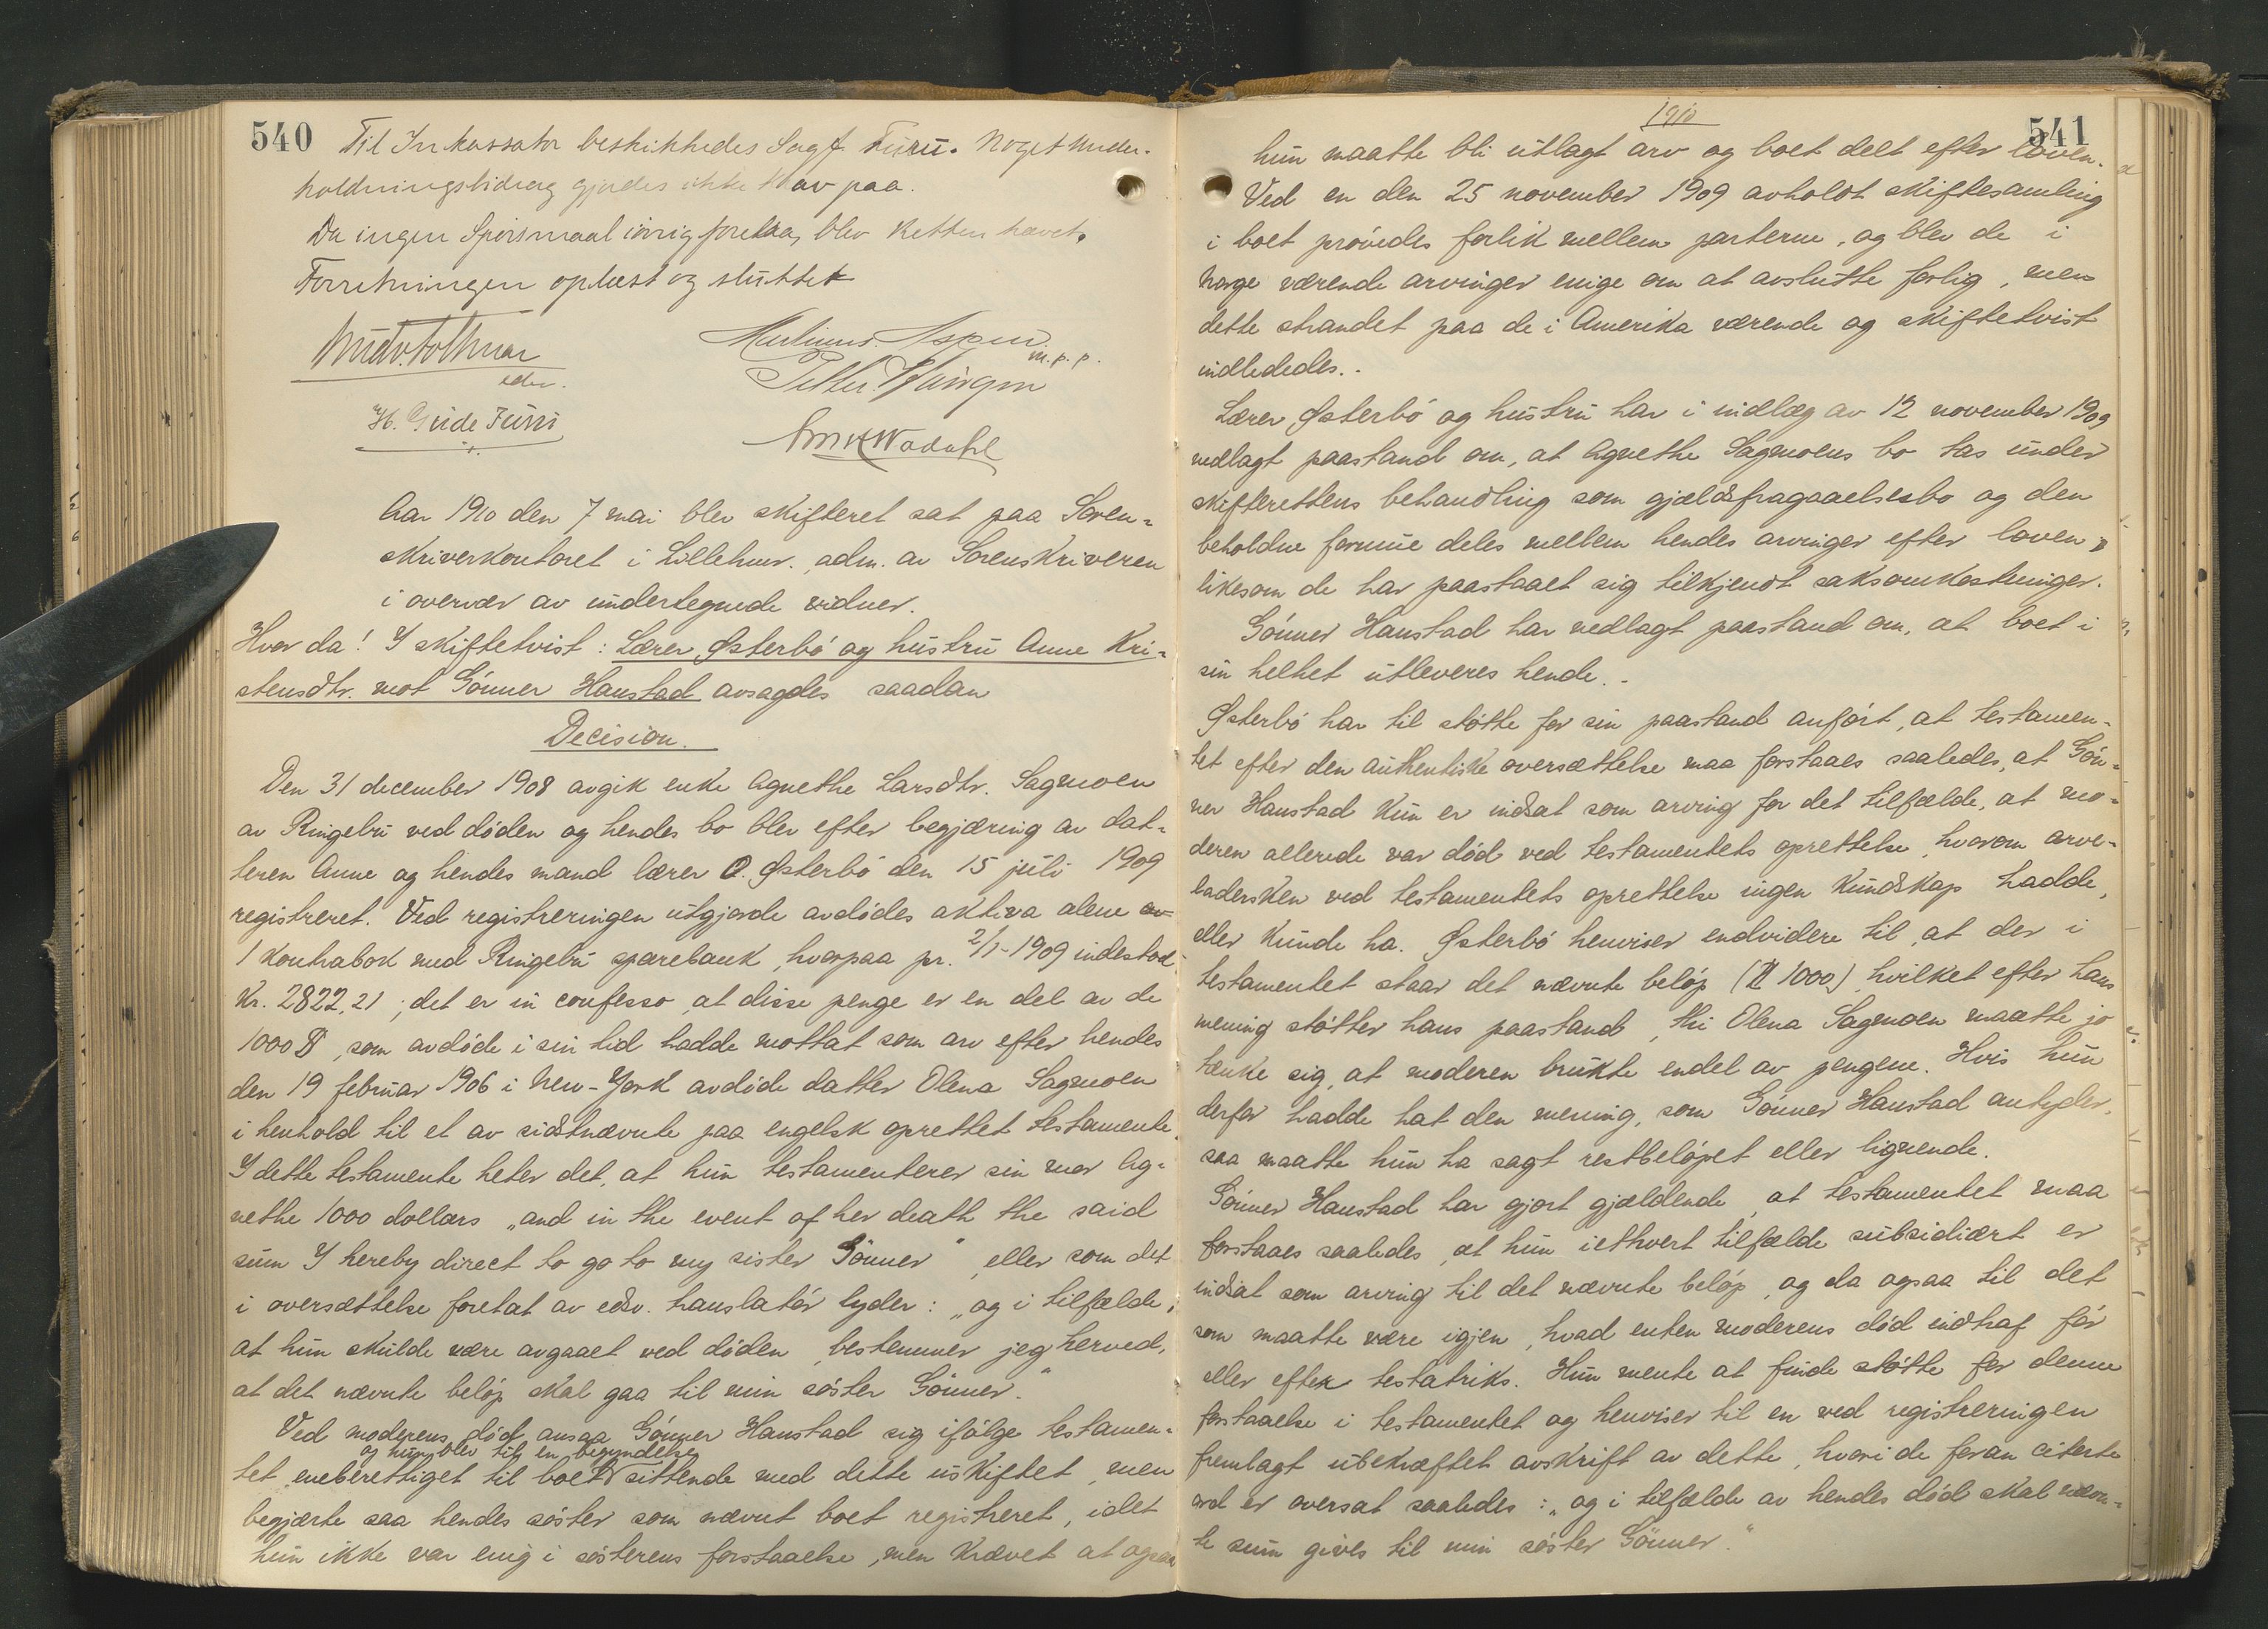 540
Til Inkassator beskikkedes Sagf. Furu. Noget under-
holdningsbidrag gjordes ikke krav paa.
Da ingen Spørsmaal iøvrig forelaa, blev Retten hævet.
Forretningen oplæst og sluttet
Martinus Aspen
m.p.p.
edsv.
H. Gude Furu
Aar 1910 den 7 mai blev skifteret sat paa Soren-
skriverkontoret i Lillehmr. adm. av Sorenskriveren
i overvær av undertegnede vidner.
Hvor da! I skiftetvist: Lærer Østerbö og hustru Anne Kri-
stensdtr. mot Gönner Hanstad avsagdes saadan
Decision.
Den 31 december 1908 avgik enke Agnethe Larsdtr. Sagmoen
av Ringebu ved döden og hendes bo blev efter begjæring av dat-
teren Anne og hendes mand lærer O. Østerbö den 15 juli 1909
registreret. Ved registreringen utgjorde avdödes aktiva alene av
1 kontrabok med Ringebu sparebank, hvorpaa pr. 2/1-1909 indestod
Kr. 2822,21; det er in confesso, at disse penge er en del av de
1000 $, som avdöde i sin tid hadde mottat som arv efter hendes
den 19 februar 1906 i New-York avdöde datter Olena Sagmoen
i henhold til et av sidstnævnte paa engelsk oprettet testamente.
I dette testamente heter det, at hun testamenterer sin mor Ag-
nethe 1000 dollars „and in the event of her death the said
sum I hereby direct to go to my sister Gönner", eller som det
i oversættelse foretat av edsv. translatör lyder: „og i tilfælde,
at hun skulde være avgaaet ved döden, bestemmer jeg herved,
at det nævnte belöp skal gaa til min söster Gönner."
Ved moderens död ansaa Gönner Hanstad sig ifölge testamen-
og hun blev til en begyndelse
tet eneberettiget til boet sittende med dette uskiftet, men
begjærte saa hendes söster som nævnt boet registreret, idet
hun ikke var enig i sösterens forstaaelse, men krævet at ogsaa
1910
541
hun maatte bli utlagt arv og boet delt efter loven.
Ved en den 25 november 1909 avholdt skiftesamling
i boet prövedes forlik mellem parterne, og blev de i
Norge værende arvinger enige om at avslutte forlig, men
dette strandet paa de i Amerika værende og skiftetvist
indlededes.-
Lærer Østerbö og hustru har i indlæg av 12 november 1909
nedlagt paastand om, at Agnethe Sagmoens bo tas under
skifterettens behandling som gjældsfragaaelsesbo og den
beholdne formue deles mellem hendes arvinger efter loven,
likesom de har paastaaet sig tilkjendt saksomkostninger.
Gönner Hanstad har nedlagt paastand om, at boet i
sin helhet utleveres hende.-
Østerbö har til stötte for sin paastand anfört, at testamen-
tet efter den authentiske oversættelse maa forstaaes saaledes, at Gön-
ner Hanstad kun er indsat som arving for det tilfælde, at mo-
deren allerede var död ved testamentets oprettelse, hvorom arve-
ladersken ved testamentets oprettelse ingen kundskap hadde,
eller kunde ha. Østerbö henviser endvidere til, at der i
testamentet staar det nævnte belöp ($ 1000), hvilket efter hans
mening stötter hans paastand, thi Olena Sagmoen maatte jo
tænke sig, at moderen brukte endel av pengene. Hvis hun
derfor hadde hat den mening, som Gönner Hanstad antyder,
saa maatte hun ha sagt restbelöpet eller lignende.
Gönner Hanstad har gjort gjældende, at testamentet maa
forstaaes saaledes, at hun iethvert tilfælde subsidiært er
indsat som arving til det nævnte belöp, og da ogsaa til det
som maatte være igjen, hvad enten moderens död indtraf för
eller efter testatriks. Hun mente at finde stötte for denne
forstaaelse i testamentet og henviser til en ved registreringen
fremlagt ubekræftet avskrift av dette, hvori de foran citerte
ord er oversat saaledes: „og i tilfælde av hendes död skal nævn-
te sum gives til min söster Gönner."